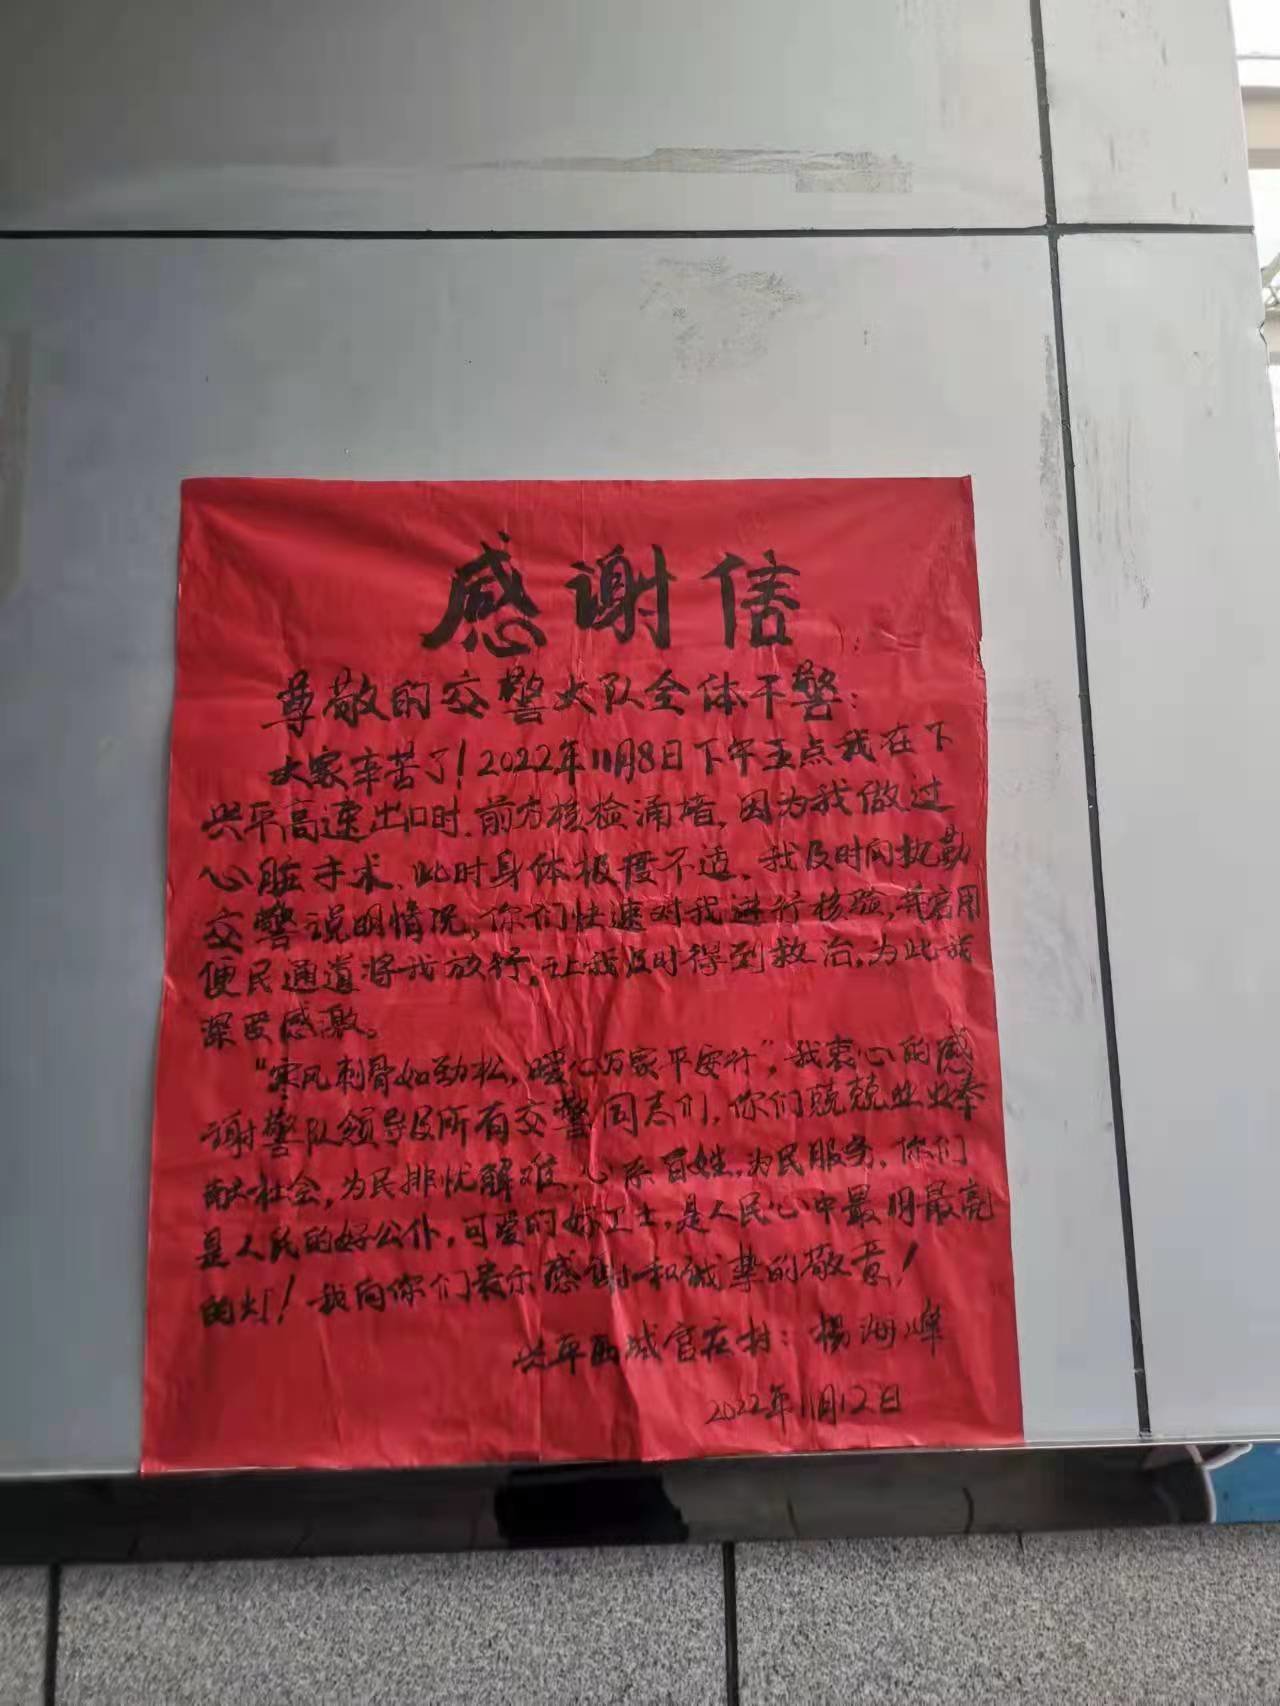 感谢信
尊敬的交警大队全体干警：
大家辛苦了！2022年11月8日下午五点我在下
兴平高速出口时，前方核检涌堵，因为我做过
心脏手术，此时身体极度不适，我及时向执勤
交警说明情况，你们快速对我进行核验，并启用
便民通道将我放行，让我及时得到救治，为此我
深受感激。
“寒风刺骨如劲松，暖心万家平安行”，我衷心的感
谢警队领导及所有交警同志们，你们兢兢业业奉
献社会，为民排忧解难，心系百姓，为民服务，你们
是人民的好公仆，可爱的好卫士，是人民心中最明最亮
的灯！我向你们表示感谢和诚挚的敬意！
兴平西城官庄村：杨海峰
2022年11月12日